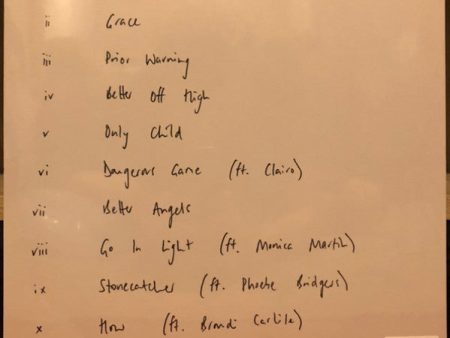 ii Grace
iii Prior Warning
iv Better Off High
v Only Child
vi Dangerous Game (ft. Clairo)
vii Better Angels
viii Go In Light (ft. Monica Martin)
ix Stonecatcher (ft. Phoebe Bridgers)
x How (ft. Brandi Carlile)